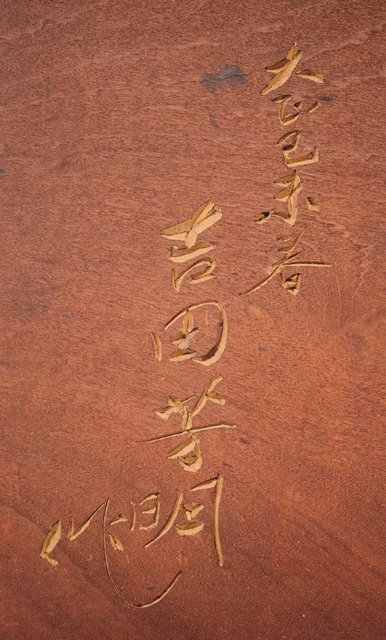 大正己未春
吉田芳明作